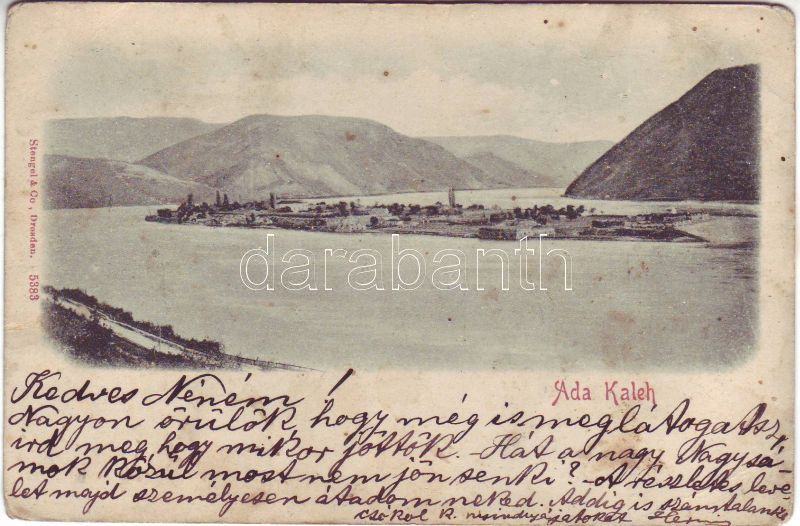 Stengel & Co., Dresden. 5383
darabanth
Ada Kaleh
Kedves Néném!
Nagyon örülök, hogy még is meglátogatsz,
ird meg, hogy mikor jöttök. - Hát a nagy Nagysá-
mok közül most nem jön senki? - A részletes leve-
let majd személyesen átadom neked. Addig is számtalanks
csókol